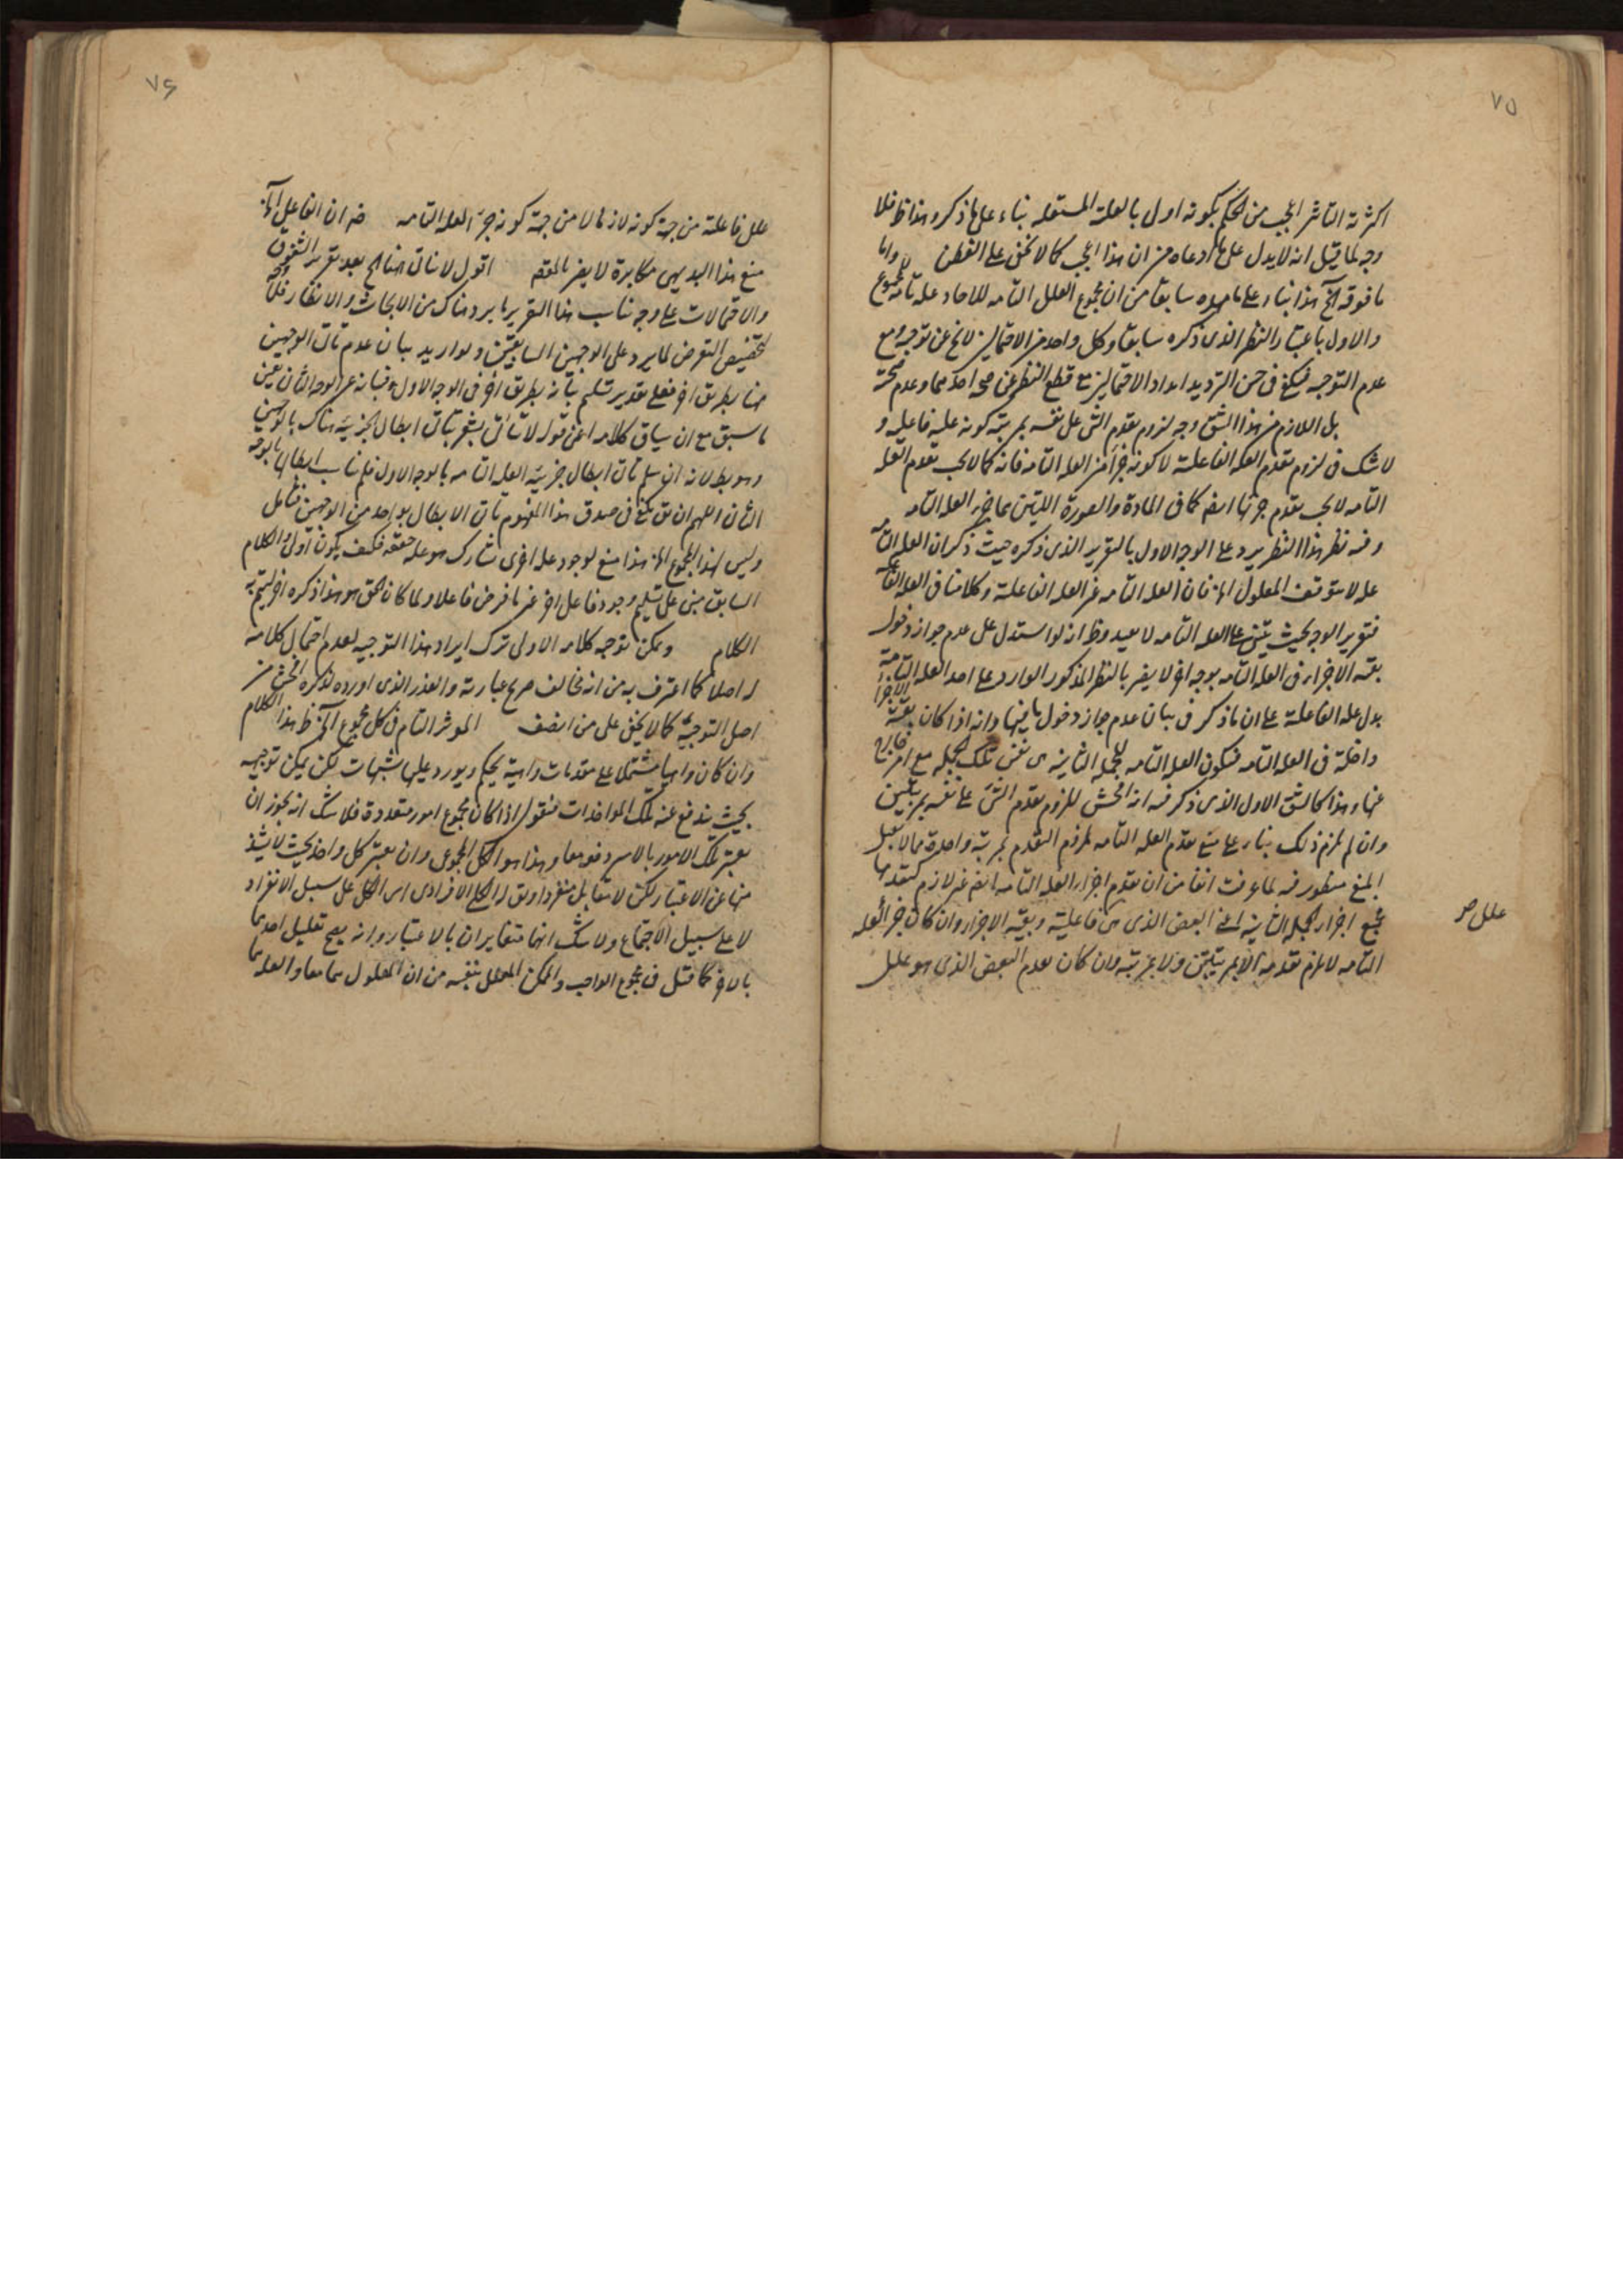 ٧٥
اكثرية التأثير اعجب من الحكم بكونه اولى بالعلة المستقلة بناء على ما ذكر وهذا ظ فلا
وجه لما قيل انه لا يدل على ما ادعاه من ان هذا اعجب كما لا يخفى على الفطن واما
ما فوقه الخ هذا بناء على ما سابقا من ان مجموع العلل التامه للاحاد علة تامة لمجموع
والاول باعتبار النظر الذى ذكره سابقا وكل واحد من الاحتمالين لا يخ عن توجيه ومع
عدم التوجيه فيكفى فى حسن الترديد ابداء الاحتمالين مع قطع النظر عن صحة احدهما وعدم صحته
بل اللازم من هذا الشق وجه لزوم تقدم الشئ على نفسه بمرتبة كونه علية فاعلية و
لا شك فى لزوم تقدم العله الفاعلية لا كونه جزأ من العله التامه فانه كما لا يجب تقدم العله
التامه لا يجب تقدم جزئها ايضا كما فى المادة والصورة اللتين هما جزء العله التامه
وفيه نظر هذا النظر يرد على الوجه الاول بالتقرير الذى ذكره حيث ذكر ان العله التامه
عله لا يتوقف المعلول الخ فان العله التامه غير العله الفاعلية وكلامنا فى العله الفاعلية
فتقرير الوجه بحيث يبتنى على العله التامه لا يفيد وظ انه لو استدل على عدم جواز دخول
بقية الاجزاء فى العله التامه بوجه اخر لا يضر بالنظر المذكور الوارد على اخذ العله التامة
بدل علة الفاعلية على ان ما ذكر فى بيان عدم جواز دخول باقيها وانه اذا كان بقية الاجزاء
داخلة فى العله التامه فيكون العله التامه للجملة الثانية هى نفس تلك الجمله مع امر خارج
عنها وهذا كالشق الاول الذى ذكر فيه انه افحش للزوم تقدم الشئ على نفسه بمرتبتين
وان لم يلزم ذلك بناء على منع تقدم العله التامه لم يلزم التقدم بمرتبة واحدة مما لا يقبل
المنع منظور فيه لما عرفت انفا من ان تقدم اجزاء العله التامه ايضا غير لازم كتقدمها
مجمع اجزاء الجمله الثانية اعنى البعض الذى هى فاعلية وبقية الاجزاء وان كان جزء العله
التامه لا يلزم تقدمه الا بمرتبتين ولا بمرتبة وان كان تقدم البعض الذى هو علل
علل صر
٧٦
علل فاعلة من جهة كونه لازما لا من جهة كونه جزء العله التامه ضر ان الفاعل الخ
منع هذا البديهى مكابرة لا يضر بالمقصد اقول لا يتأتى هنا الخ بعد تقرير الشقوق
والاحتمالات على وجه يناسب هذا التقرير ما يرد هناك من الابحاث والانظار فلا وجه
لتخصيص التعرض لما يرد على الوجهين السابقين ولو اريد بيان عدم تأتى الوجهين
هنا بطريق اخر فعلى تقدير تسليم تأتيه بطريق اخر فى الوجه الاول وفيما نه عن الوجه الثانى عين
ما سبق مع ان سياق كلامه اعنى قوله لا يتأتى يشعر بتأتى ابطال الجزئية هناك بالوجهين
وهو بط لانه ان سلم تأتى ابطال جزئية العله التامه بالوجه الاول فلم يتأت ابطالها بالوجه
الثانى اللهم ان يق يكفى فى صدق هذا المفهوم تأتى الابطال بواحد من الوجهين فتأمل
وليس لهذا المجموع الخ هذا منع لوجود علة اخرى تشارك هو علة حقيقة فكيف يكون اولى والكلام
السابق مبنى على تسليم وجود فاعل اخر غير ما فرض فاعلا ولما كان الحق هو هذا ذكره اخر ليتم به
الكلام ويمكن توجيه كلامه الاولى ترك ايراد هذا التوجيه لعدم احتمال كلامه
له اصلا كما اعترف به من انه يخالف صريح عبارته والعذر الذى اورده لذكره افحش من
اصل التوجيه كما لا يخفى على من انصف المؤثر التام فى كل مجموع الخ ظ هذا الكلام
وان كان واهيا مشتملا على مقدمات واهية يحكم ويورد عليها شبهات لكن يمكن توجيهه
بحيث يندفع عنه تلك المواخذات فنقول اذا كان مجموع امور متعددة فلا شك انه يجوز ان
يعتبر تلك الامور بالاسر دفعة معا وهذا هو الكل المجموعى وان يعتبر كل واحد بحيث لا يشذ
منها عن الاعتبار لكن لا معا بل منفردا ويق له الكل الافرادى اى الكل على سبيل الانفراد
لا على سبيل الاجتماع ولا شك انهما متغايران بالاعتبار وانه يصح تعليل احدهما
بالاخر كما قيل فى مجموع الواجب والممكن المعلل بنفسه من ان المعلول هما معا والعله هما